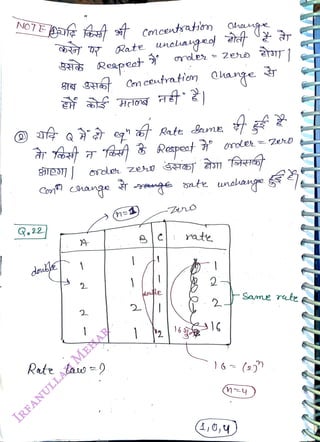 NOTE ① यदि किसी भी Concentration change
करने पर Rate unchanged होती है तो
उसके Respect में order = zero होगा।
अब उसकी Concentration Change से
हमें कोई मतलब नहीं है।
② यदि Q में दो eqⁿ की Rate Same दी हुई है
तो किसी न किसी के Respect में order = zero
आएगा। order zero उसका होगा जिसकी
Conⁿ change से rate unchange हुई है।
n=1
zero
Q.22
A B C rate
double
1 1 1 1
2 1 1 2
Same rate
2 2 1 2
double
1 1 2 16 गुना 16
Rate law = ?
16 = (2)ⁿ
n=4
1, 0, 4
IRFANULLAH MEHAR